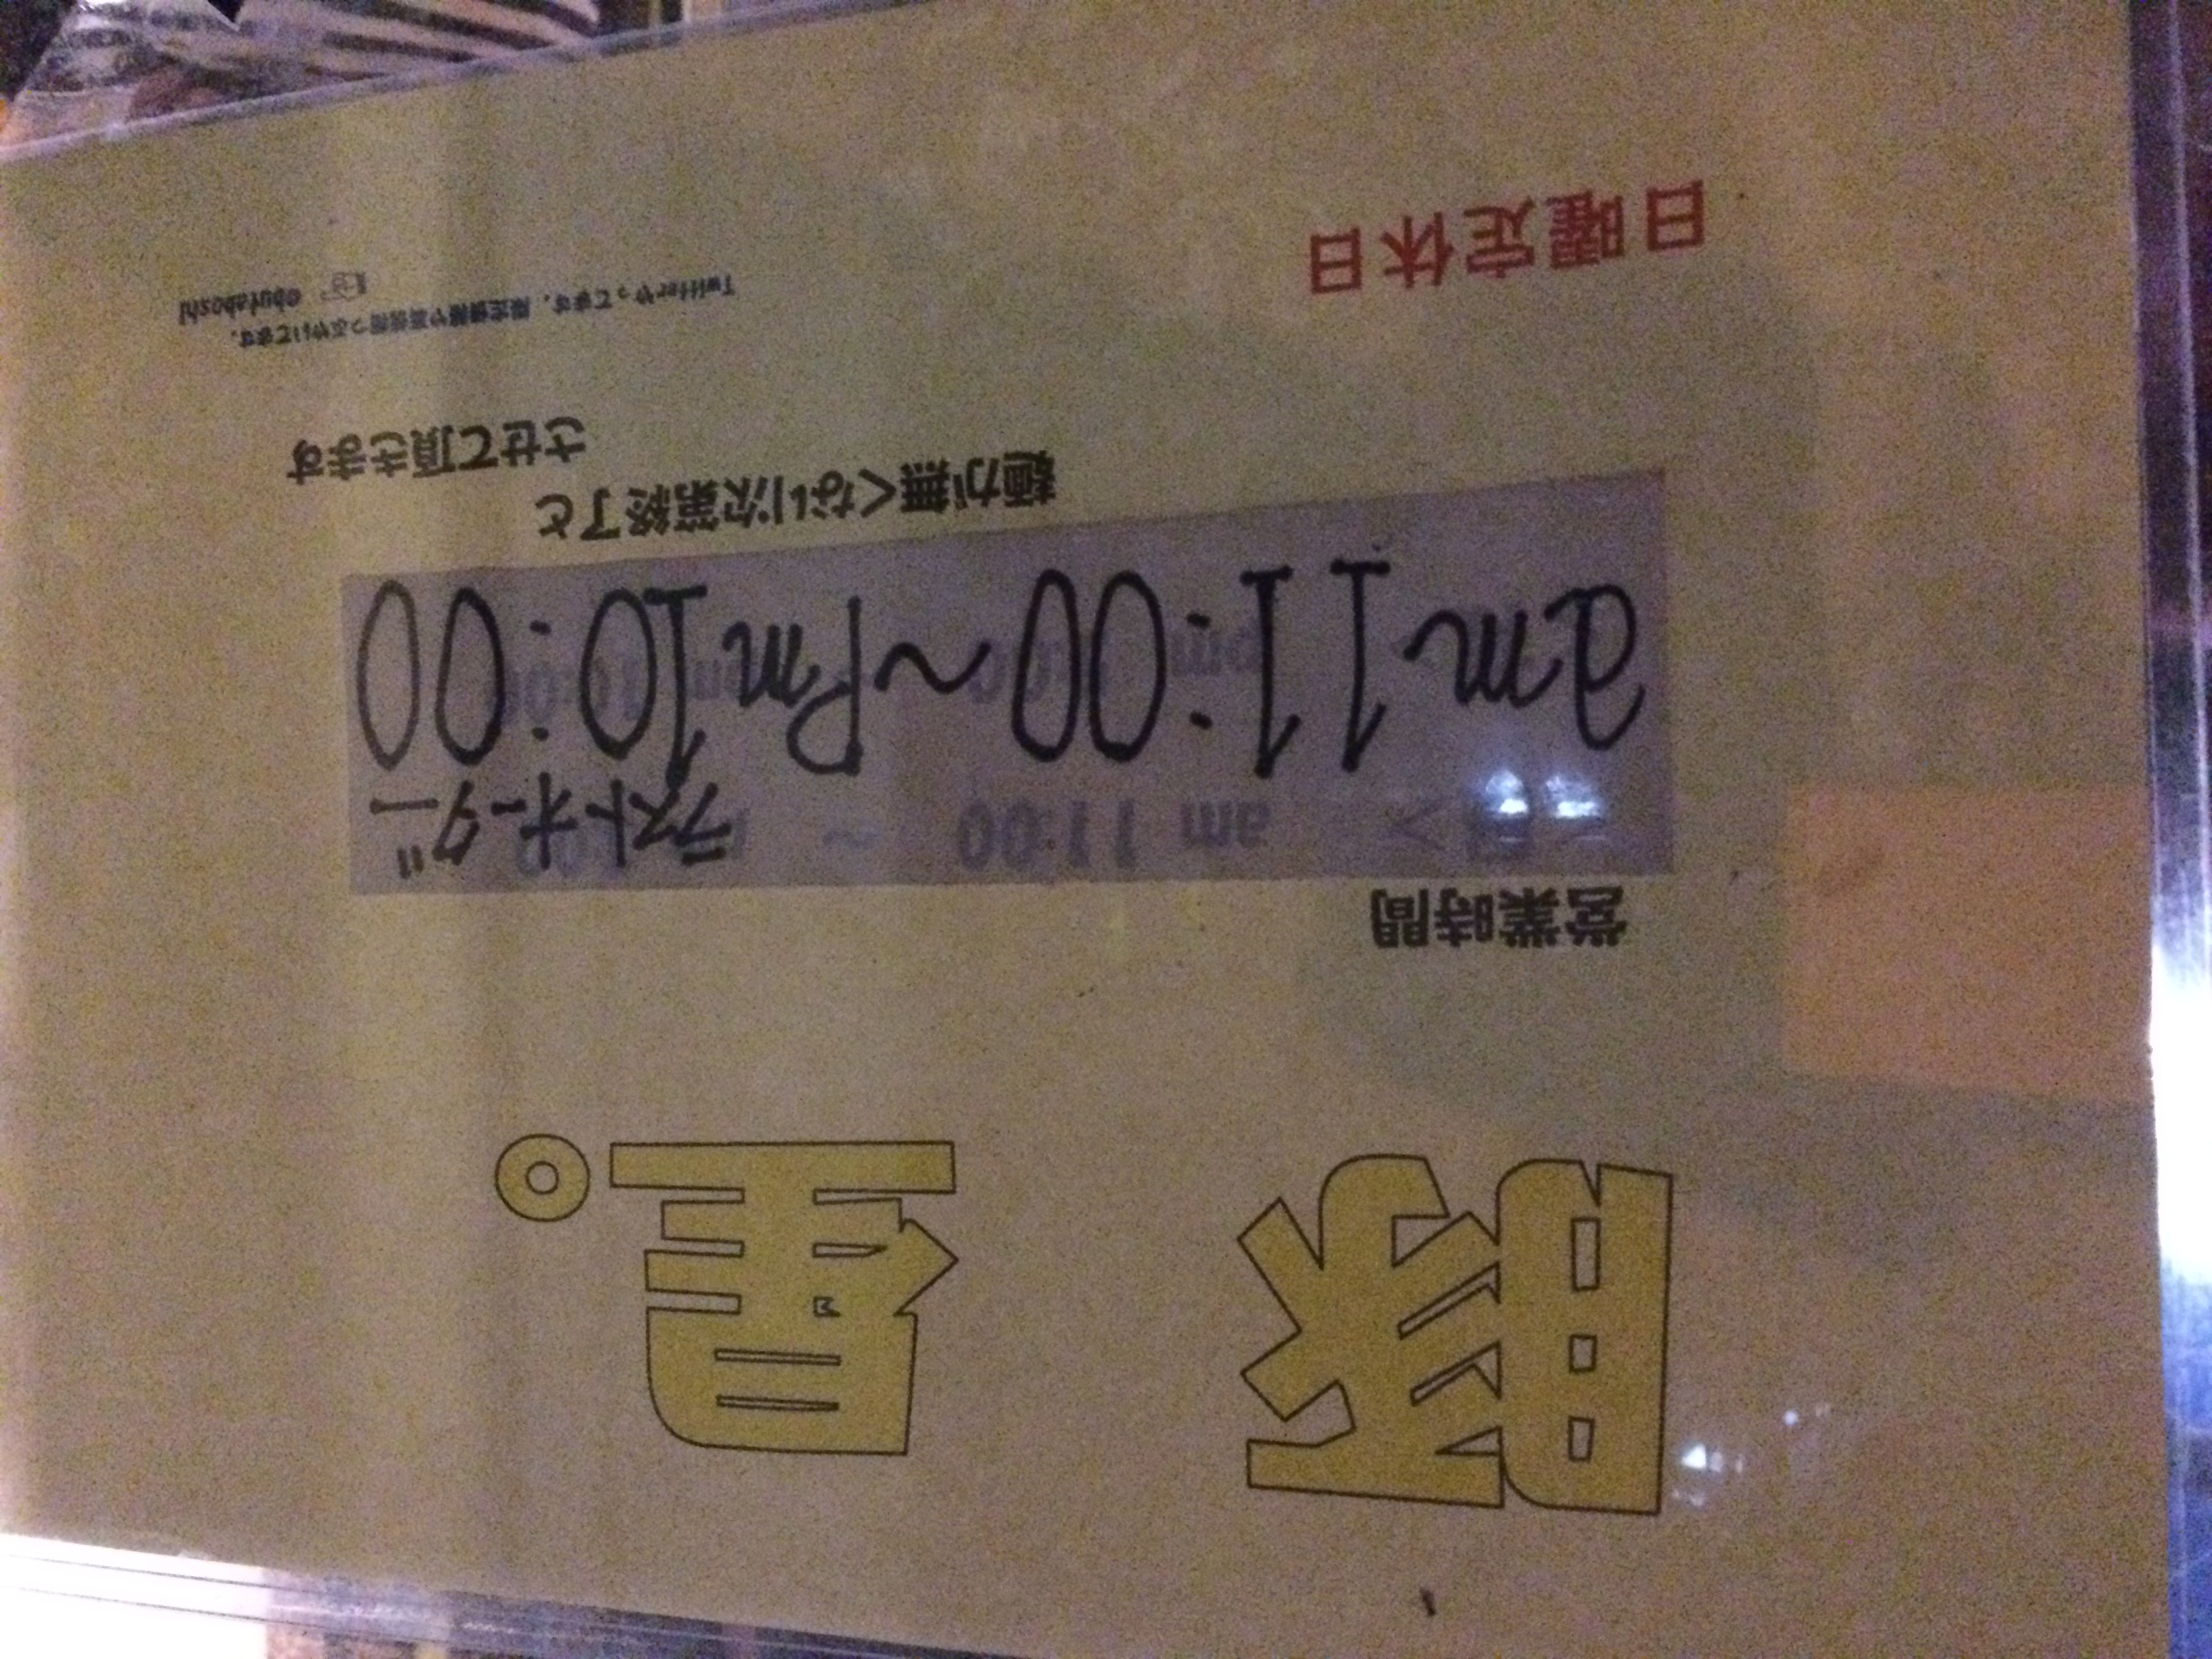 豚星。
営業時間
ラストオーダー
am11:00～Pm10:00
麺が無くなり次第終了と
させて頂きます
Twitterやってます。限定情報や臨時情報つぶやいてます。
@butaboshi
日曜定休日